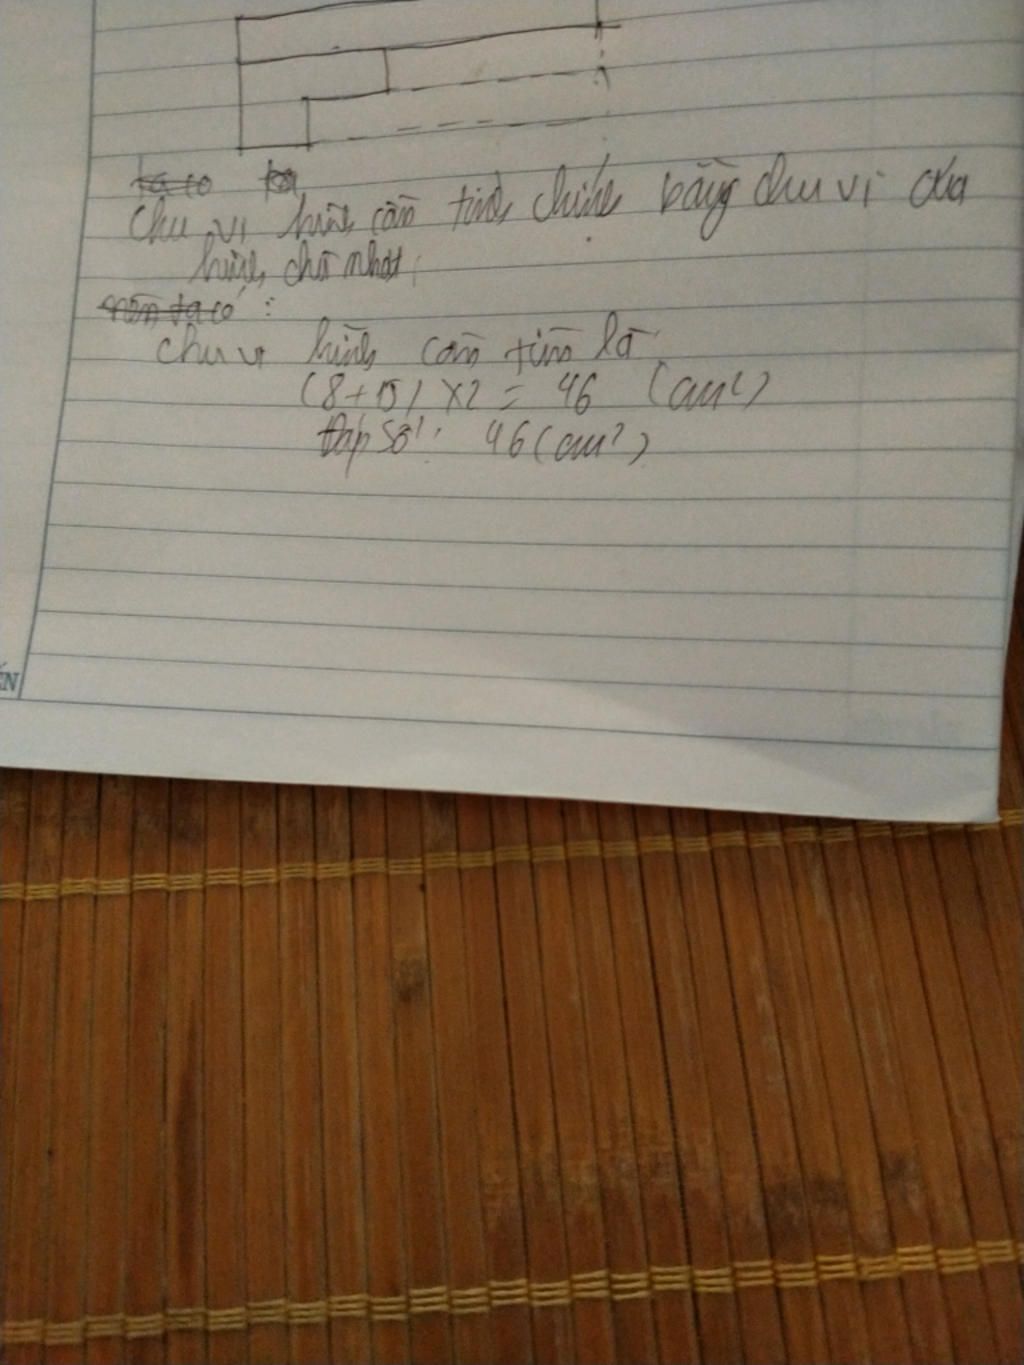 ta có ta
Chu vi hình cần tính chính bằng chu vi của
hình chữ nhật
nên ta có :
chu vi hình cần tìm là
(8+15) x2 = 46 (cm²)
Đáp số: 46 (cm²)
ẾN